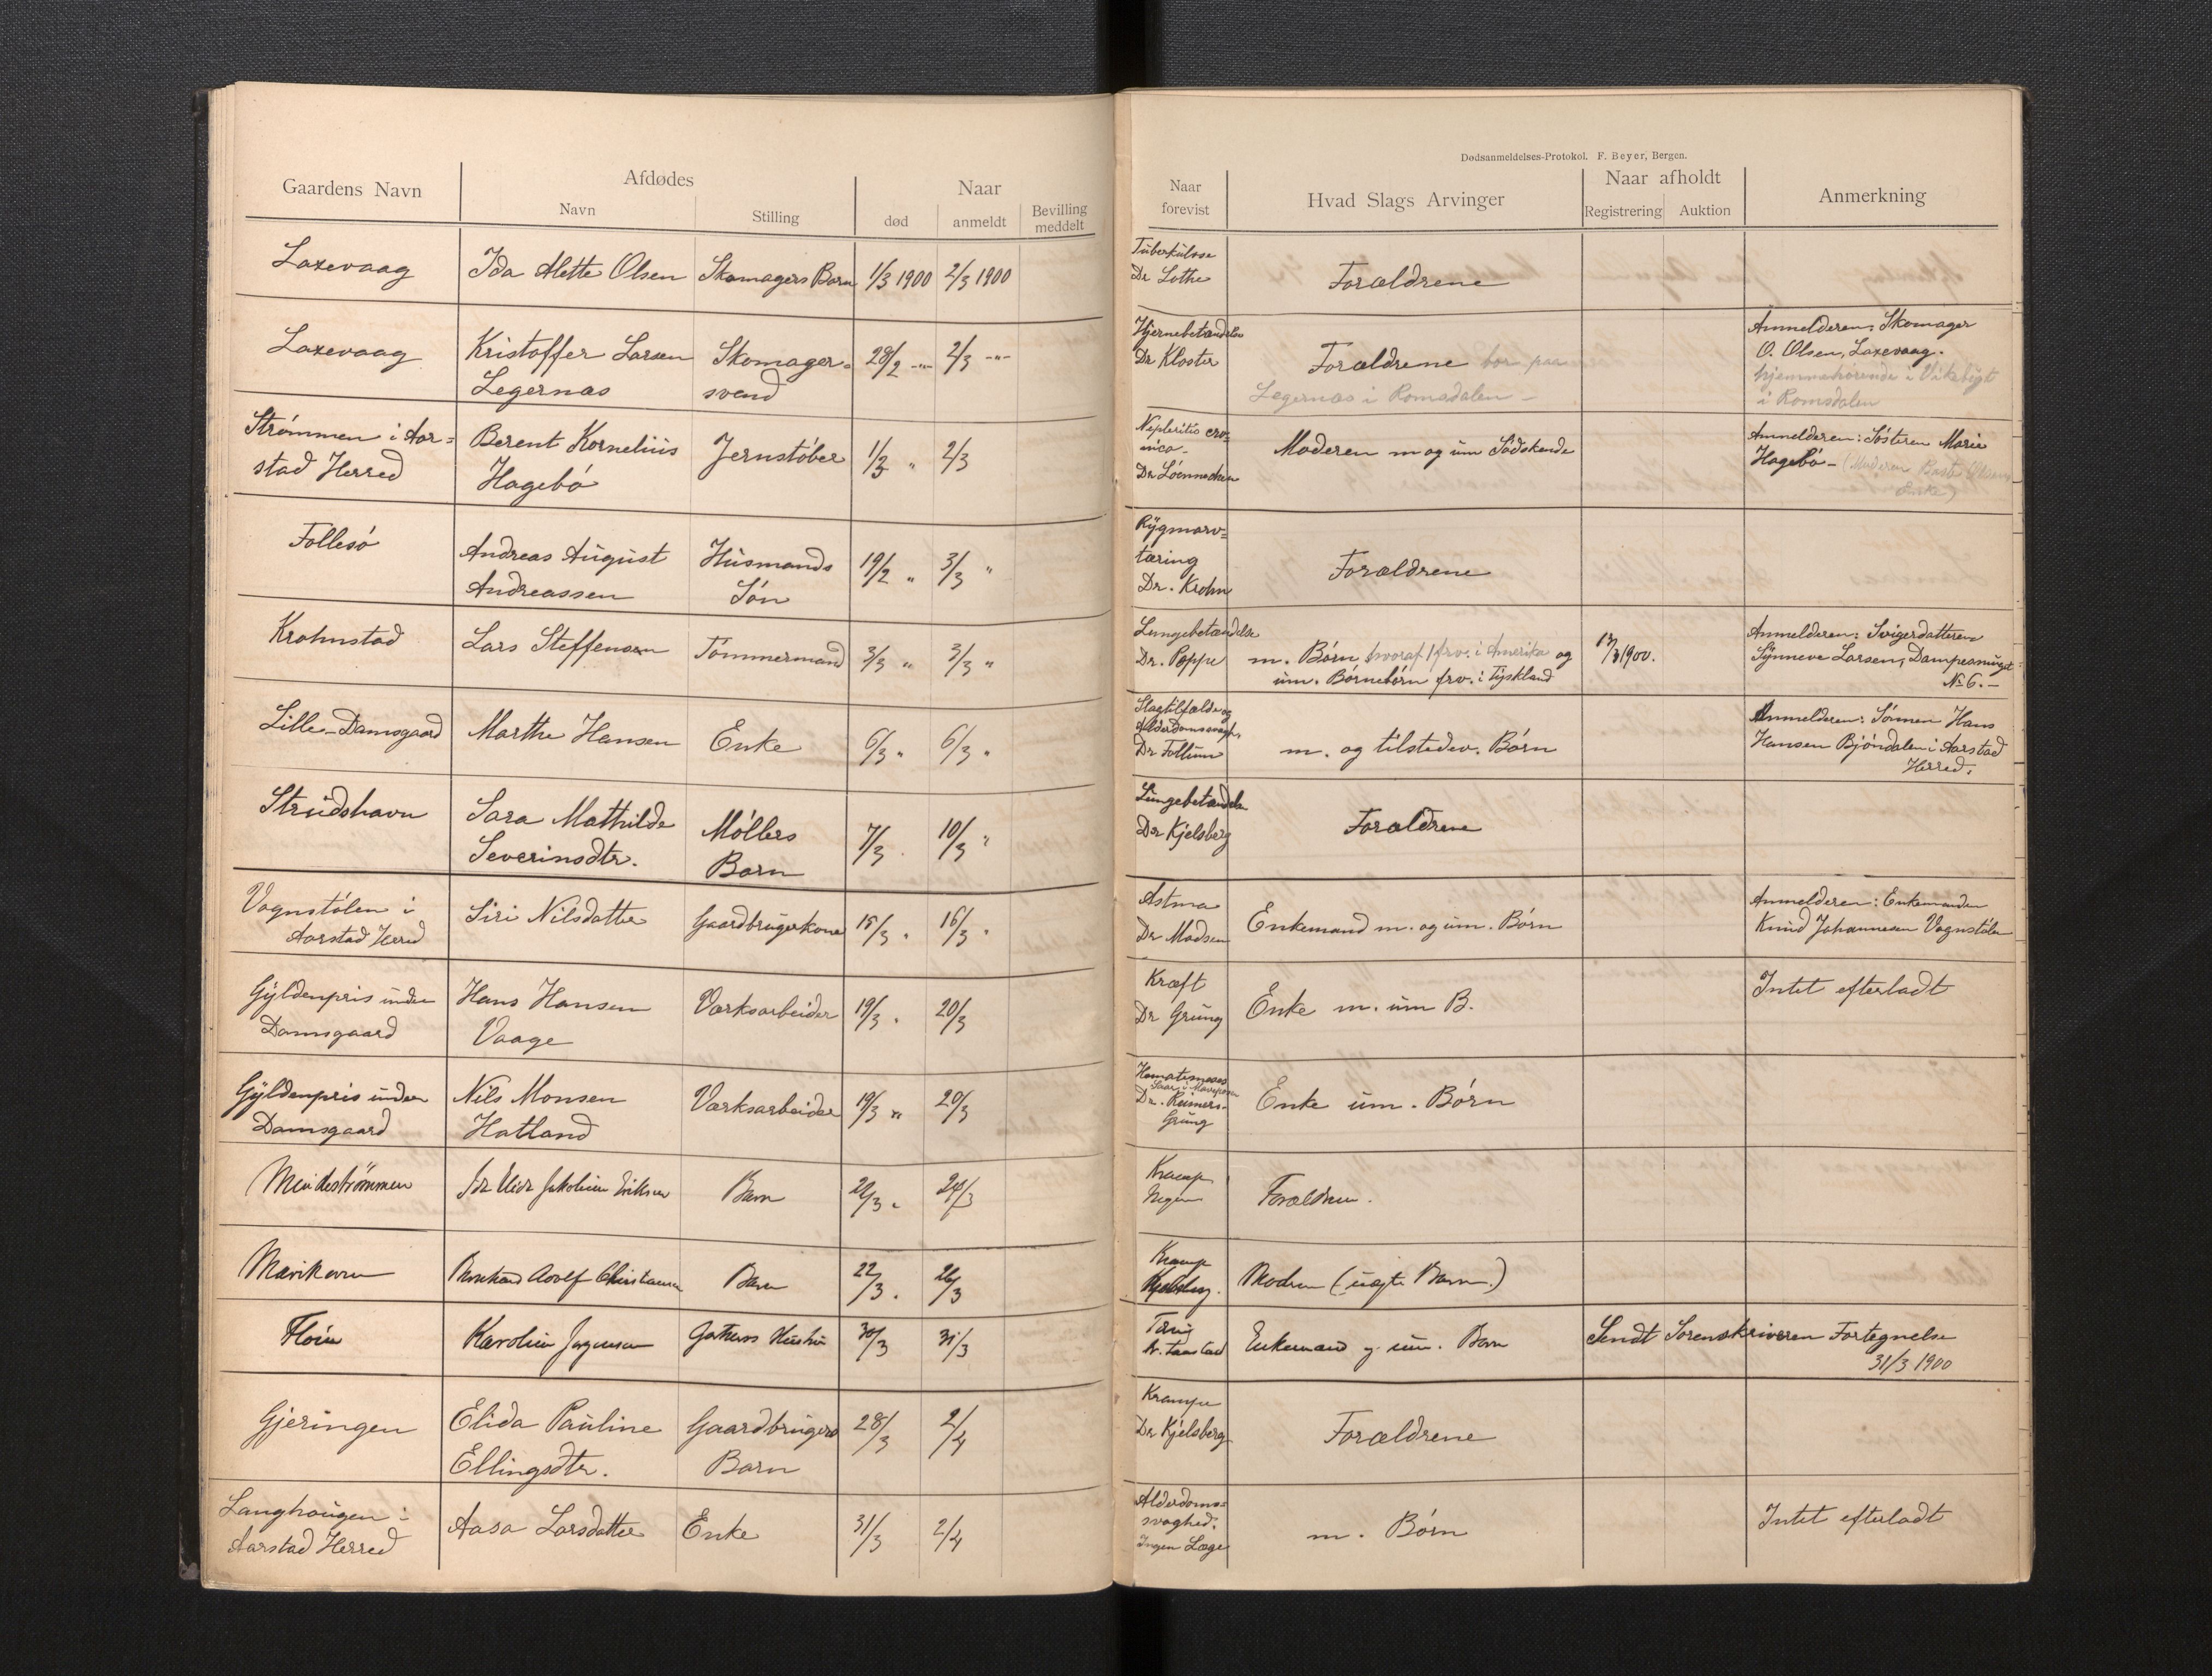 Dødsanmeldelses-Protokol. F. Beyer, Bergen.
Gaardens Navn
Afdødes
Navn
Stilling
Naar
død
anmeldt
Bevilling meddelt
Naar forevist
Hvad Slags Arvinger
Naar afholdt
Registrering
Auktion
Anmerkning
Laxevaag
Ida Alette Olsen
Skomagers Barn
1/3 1900
2/3 1900
Tuberkulose
Dr Lothe
Forældrene
Laxevaag
Kristoffer Larsen
Legernæs
Skomager=
svend
28/2 -"-
2/3 -"-
Hjernebetændelse
Dr Kloster
Forældrene bor paa
Legernæs i Romsdalen -
Anmelderen, Skomager
O. Olsen, Laxevaag.
hjemmehørende i Vikebygt
i Romsdalen
Strømmen i Aar=
stad Herred
Berent Kornelius
Hagebø
Jernstøber
1/3 "
2/3
Nephritis cro=
nica -
Dr
Moderen m og um Sødskende
Anmelderen: Søsteren Marie
Hagebø - (Moderen
Enke)
Follesø
Andreas August
Andreassen
Husmands
Søn
19/2 "
3/3 "
Rygmarv=
tæring
Dr. Krohn
Forældrene
Krohnstad
Lars Steffensen
Tømmermand
3/3 "
3/3 "
Lungebetændelse
Dr. Poppe
m. Børn, hvoraf 1 frv. i Amerika og
um. Børnebørn frv. i Tyskland
17/3 1900.
Anmelderen: Svigerdatteren
Synneve Larsen,
No 6. -
Lille-Damsgaard
Marthe Hansen
Enke
6/3 "
6/3 "
Slagtilfælde og
Alderdomssvagh,
Dr Follum
m. og tilstedev. Børn
Anmelderen: Sønnen Hans
Hansen Bjøndalen i Aarstad
Herred.
Strudshavn
Sara Mathilde
Severinsdtr.
Møllers
Barn
7/3
10/3 "
Lungebetændelse
Dr Kjelsberg
Forældrene
Vognstølen i
Aarstad Herred
Siri Nilsdatter
Gaardbrugerkone
15/3 "
16/3 "
Astma
Dr Madsen
Enkemand m. og um. Børn
Anmelderen: Enkemanden
Knud Johannesen Vognstølen
Gyldenpris under
Damsgaard
Hans Hansen
Vaage
Værksarbeider
19/3 "
20/3
Kræft
Dr Grung
Enke m. um B.
Intet efterladt
Gyldenpris under
Damsgaard
Nils Monsen
Hatland
Værksarbeider
19/3 "
20/3
Hematemeses
Saar i Mavesæk
Dr. Reimers-
Grung
Enke um. Børn
Mindestrømmen
Jakobine Eriksen
Barn
22/3 "
24/3
Krampe
Ingen
Forældrene.
Marikoven
Adolf Christiansen
Barn
22/3 .
26/3
Krampe
Kjelsberg.
Modren (uægte Barn.)
Floien
Karoline Jørgensen
Gartners Hustru
30/3
31/3
Tæring
Enkemand og um. Børn
Sendt Sorenskriveren Fortegnelse
31/3 1900
Gjeringen
Elida Pauline
Ellingsdtr.
Gaardbrugers
Barn
28/3
2/4
Krampe
Dr Kjelsberg
Forældrene
Langhougen i
Aarstad Herred
Aasa Larsdatter
Enke
31/3
2/4
Alderdoms=
svaghed.
Ingen Læge
m. Børn
Intet efterladt